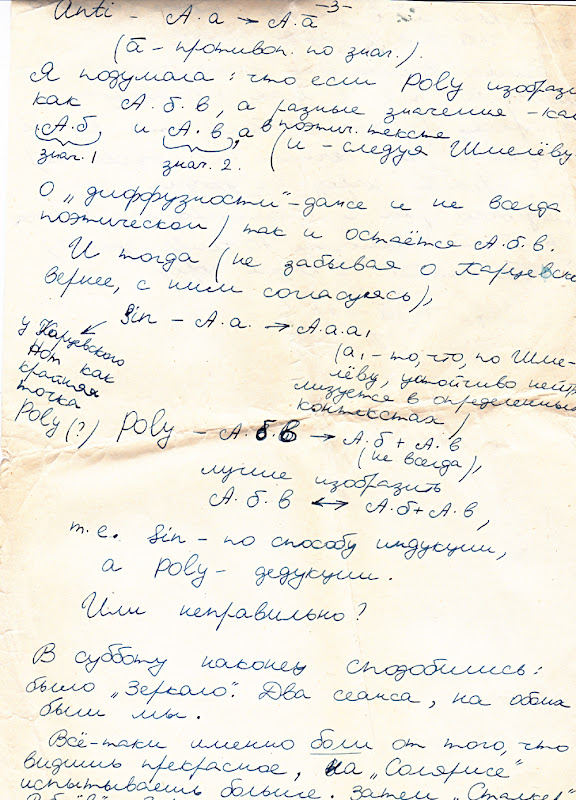 -3-
Anti - А.а → А.ā
(ā - противоп. по знач.).
Я подумала: что если Poly изобрази
как А.б.в, а разные значения - как
А.б и А.в, а в поэтич. тексте
знач. 1 знач. 2. (и - следуя Шмелёву
о „диффузности" - даже и не всегда
поэтической) так и остаётся А.б.в.
И тогда (не забывая о Карцевско
вернее, с ним согласуясь),
Sin - А.а. → А.а.а₁
(а₁ - то, что, по Шме-
лёву, устойчиво нейтр
лизуется в определенных
контекстах)
у Карцевского
Hom как
крайняя
точка
Poly (?)
Poly - А.б.в → А.б + А.в
(не всегда),
лучше изобразить
А.б.в ↔ А.б+А.в,
т.е. Sin - по способу индукции,
а Poly - дедукции.
Или неправильно?
В субботу наконец сподобились:
было „Зеркало". Два сеанса, на обоих
были мы.
Всё-таки именно боли от того, что
видишь прекрасное, на „Солярисе"
испытываешь больше. Затем „Сталкер"